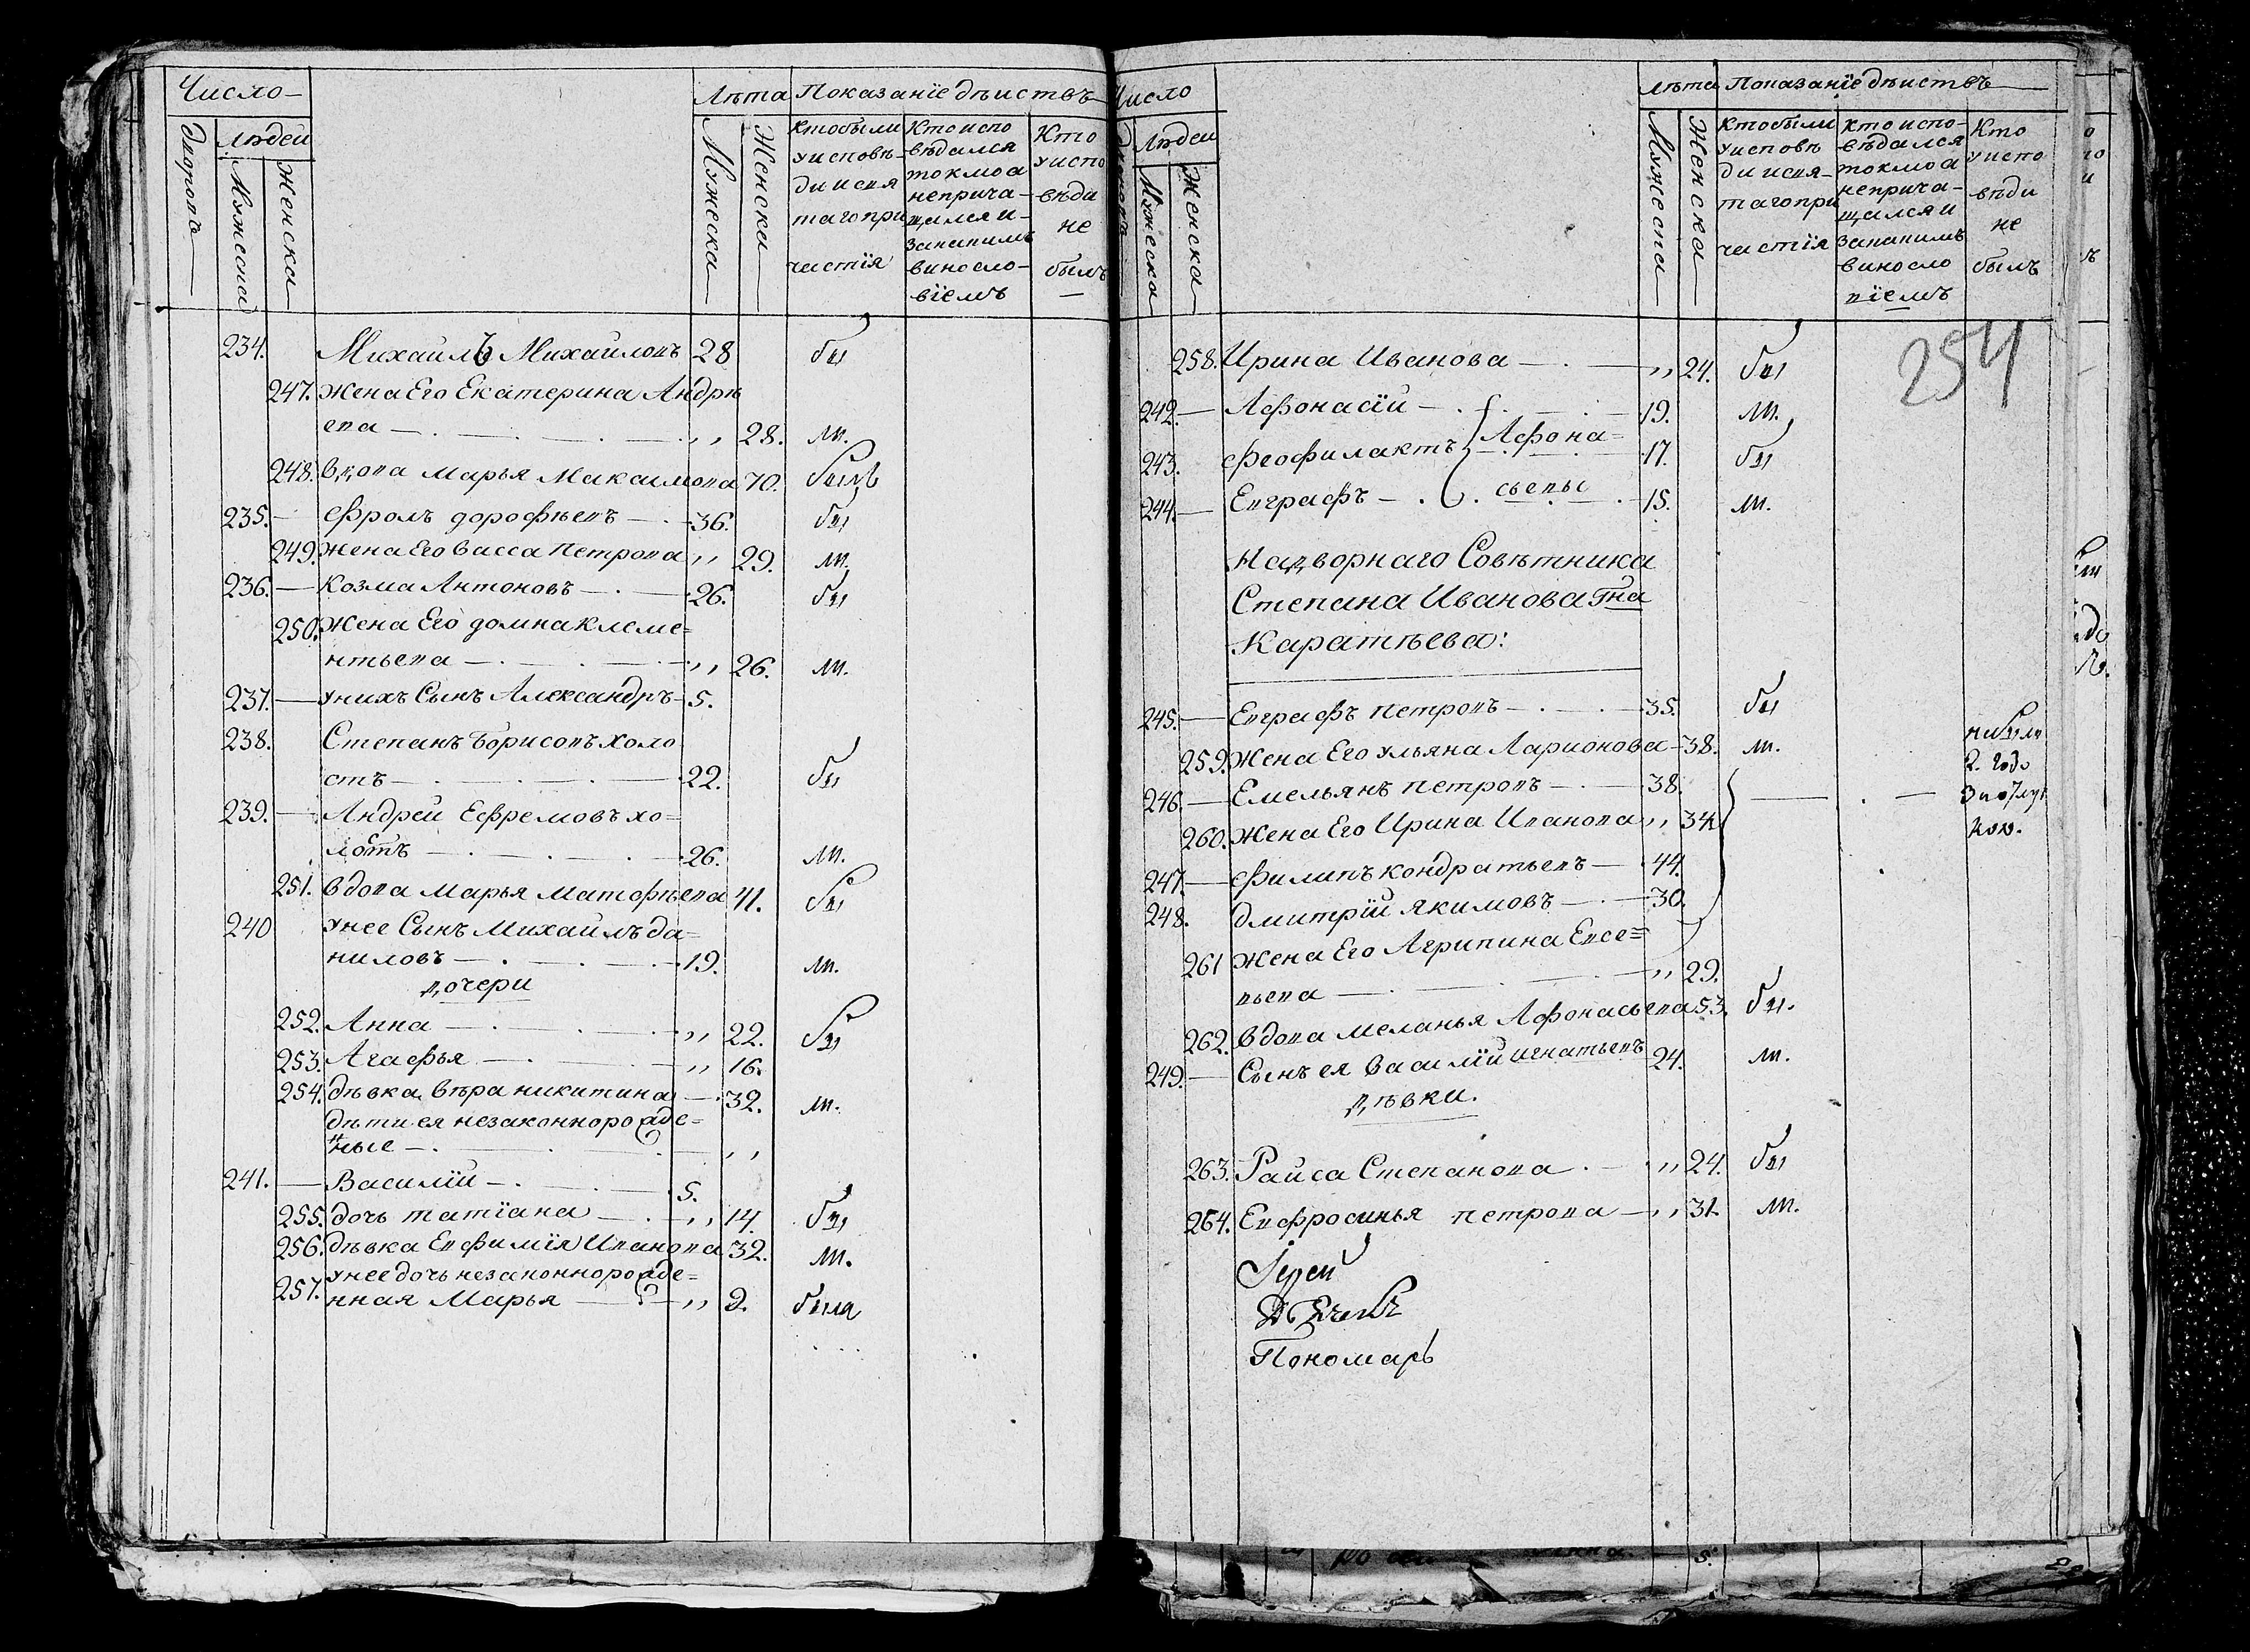 Число
Лѣта Показанїе дѣиствъ
Дворовъ
людеи
Мужеска
Женска
Мужеска
Женска
Кто были
у исповѣ-
ди и свя
таго при
частїя
Кто испо
вѣдался
токмо а
неприча-
щался и-
за какимъ
виносло-
вїемъ
Кто
у испо
вѣди
не
былъ
234. Михаилъ Михаиловъ 28 бы
247. жена Его Екатерина Андрѣ
ева ,, 28. ли.
248. вдова Марья Максимова 70. былъ
235. Фролъ дорофѣевъ 36. бы
249. жена Его Васса Петрова ,, 29. ли.
236. Козма Антоновъ 26. бы
250. Жена Его домна клеме=
нтьева ,, 26. ли.
237. у нихъ Сынъ Александръ 5.
238. Степанъ Борисовъ холо
стъ 22. бы
239. Андреи Ефремовъ хо=
лостъ 26. ли.
251. вдова Марья Матфѣева 41. бы
240 у нее Сынъ Михаилъ да=
ниловъ 19. ли.
дочери
252. Анна ,, 22. бы
253. Агафья ,, 16.
254. дѣвка вѣра никитина 32. ли.
дѣти ея незаконнорожде=
нные ,,
241. Василїи 5.
255. дочь татїана ,, 14. бы
256. дѣвка Евфимїя Иванова 32. ли.
257. у нее дочь незаконнорожде=
нная Марья ,, 9. была
Число
лѣта Показанїе дѣиствъ
людеи
Мужеска
Женска
Мужеска
Женска
Кто были
у исповѣ
ди и свя-
таго при
частїя
Кто испо-
вѣдался
токмо а
неприча-
щался и
за какимъ
виносло
вїемъ
Кто
у испо
вѣди
не
былъ
254
258. Ирина Иванова ,, 24. бы
242. Афонасїи 19. ли.
243. Феофилактъ Афона= 17. бы
244. Евграфъ сьевы 15. ли.
Надворнаго Совѣтника
Степана Иванова Гна
Каратѣева:
245. Евграфъ петровъ 35. бы
259. Жена Его ульяна Ларионова 38. ли.
небыли
2. годо
246. Емельянъ петровъ 38.
260. жена Его Ирина Иванова ,, 34
247. Филипъ кондратьевъ 44.
248. дмитрїи якимовъ 30.
261 жена Его Агрипина Евсе=
вьева ,, 29.
262. вдова меланья Афонасьева 53. бы.
249. Сынъ ея Василїи игнатьевъ 24. ли.
дѣвки.
263. Раиса Степанова ,, 24. бы
264. Евфросинья петрова ,, 31. ли.
Іерей
Пономарь